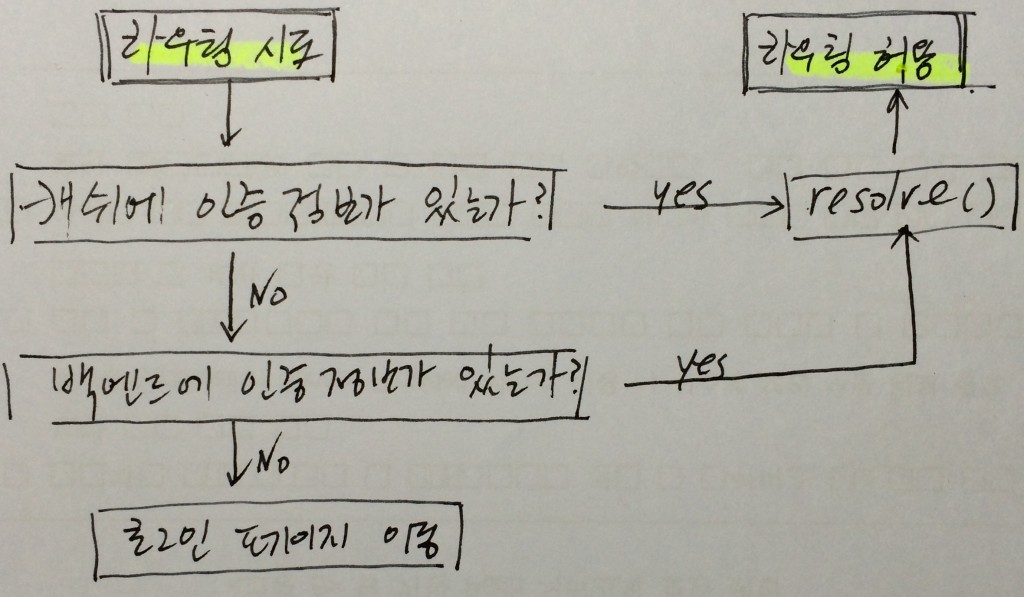 라우팅 시도
라우팅 허용
캐쉬에 인증 정보가 있는가?
yes
resolve()
No
백엔드에 인증정보가 있는가?
yes
No
로그인 페이지 이동